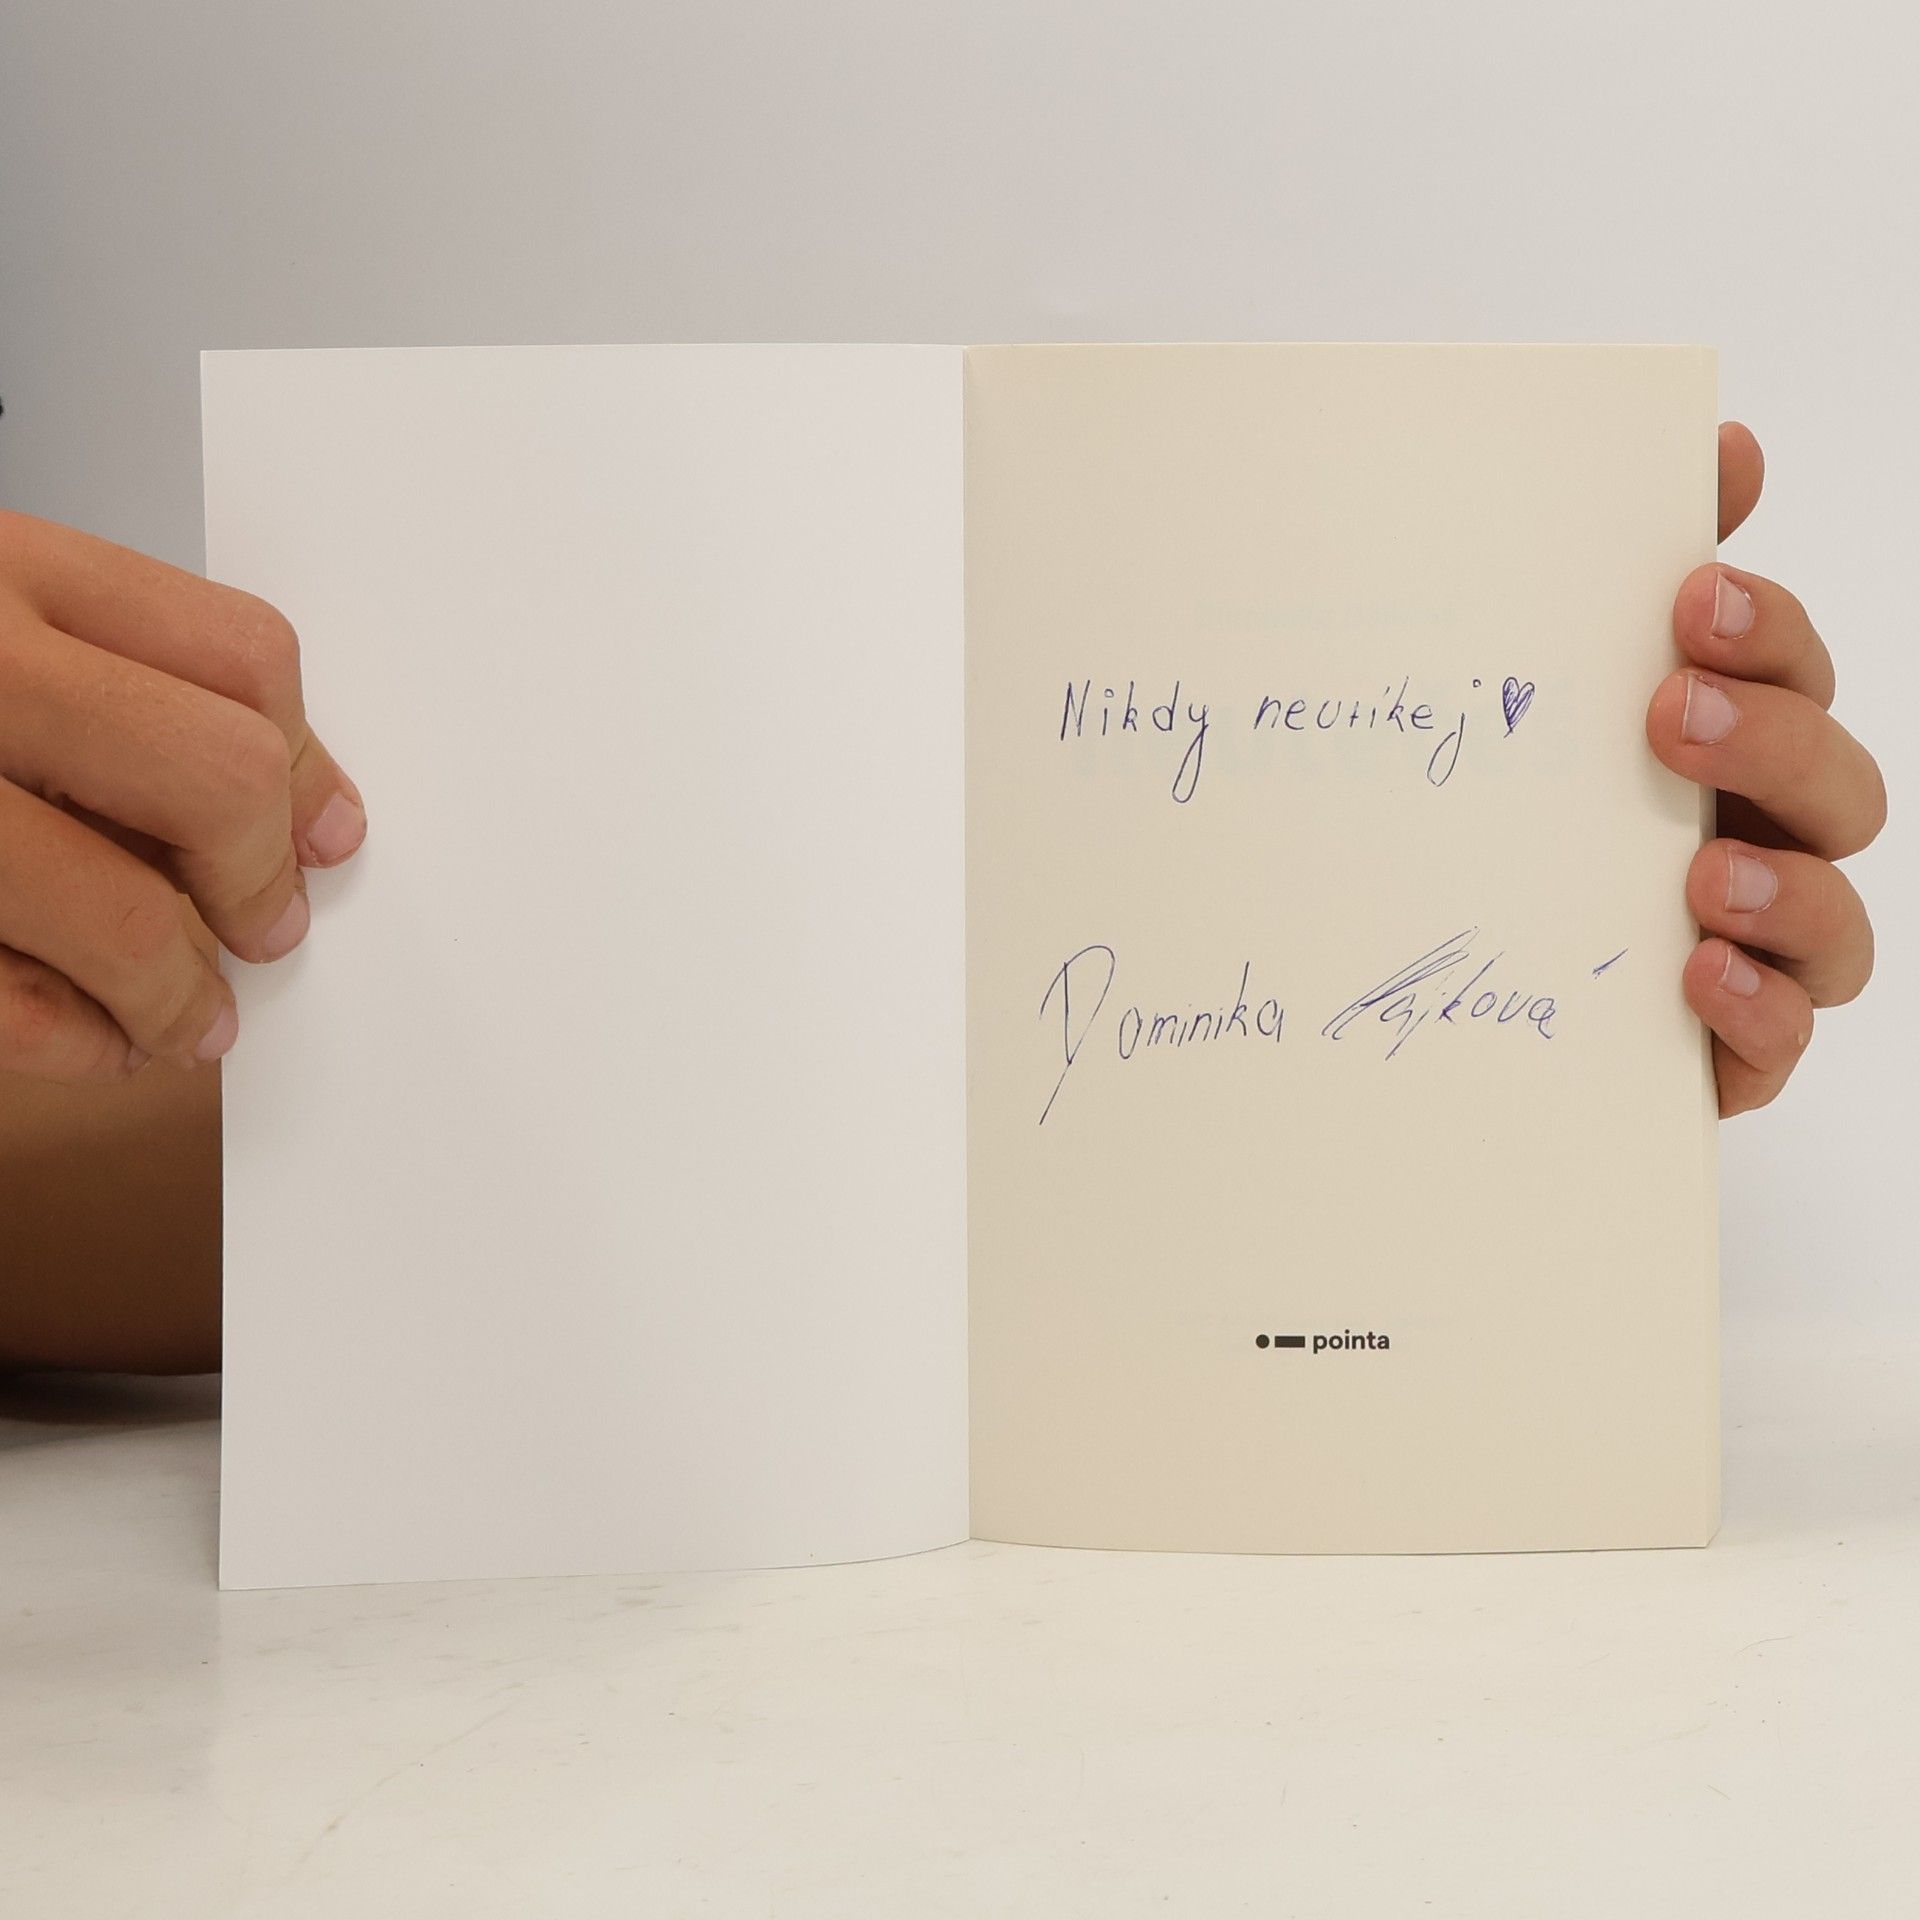 Nikdy neutíkej
Dominika
pointa